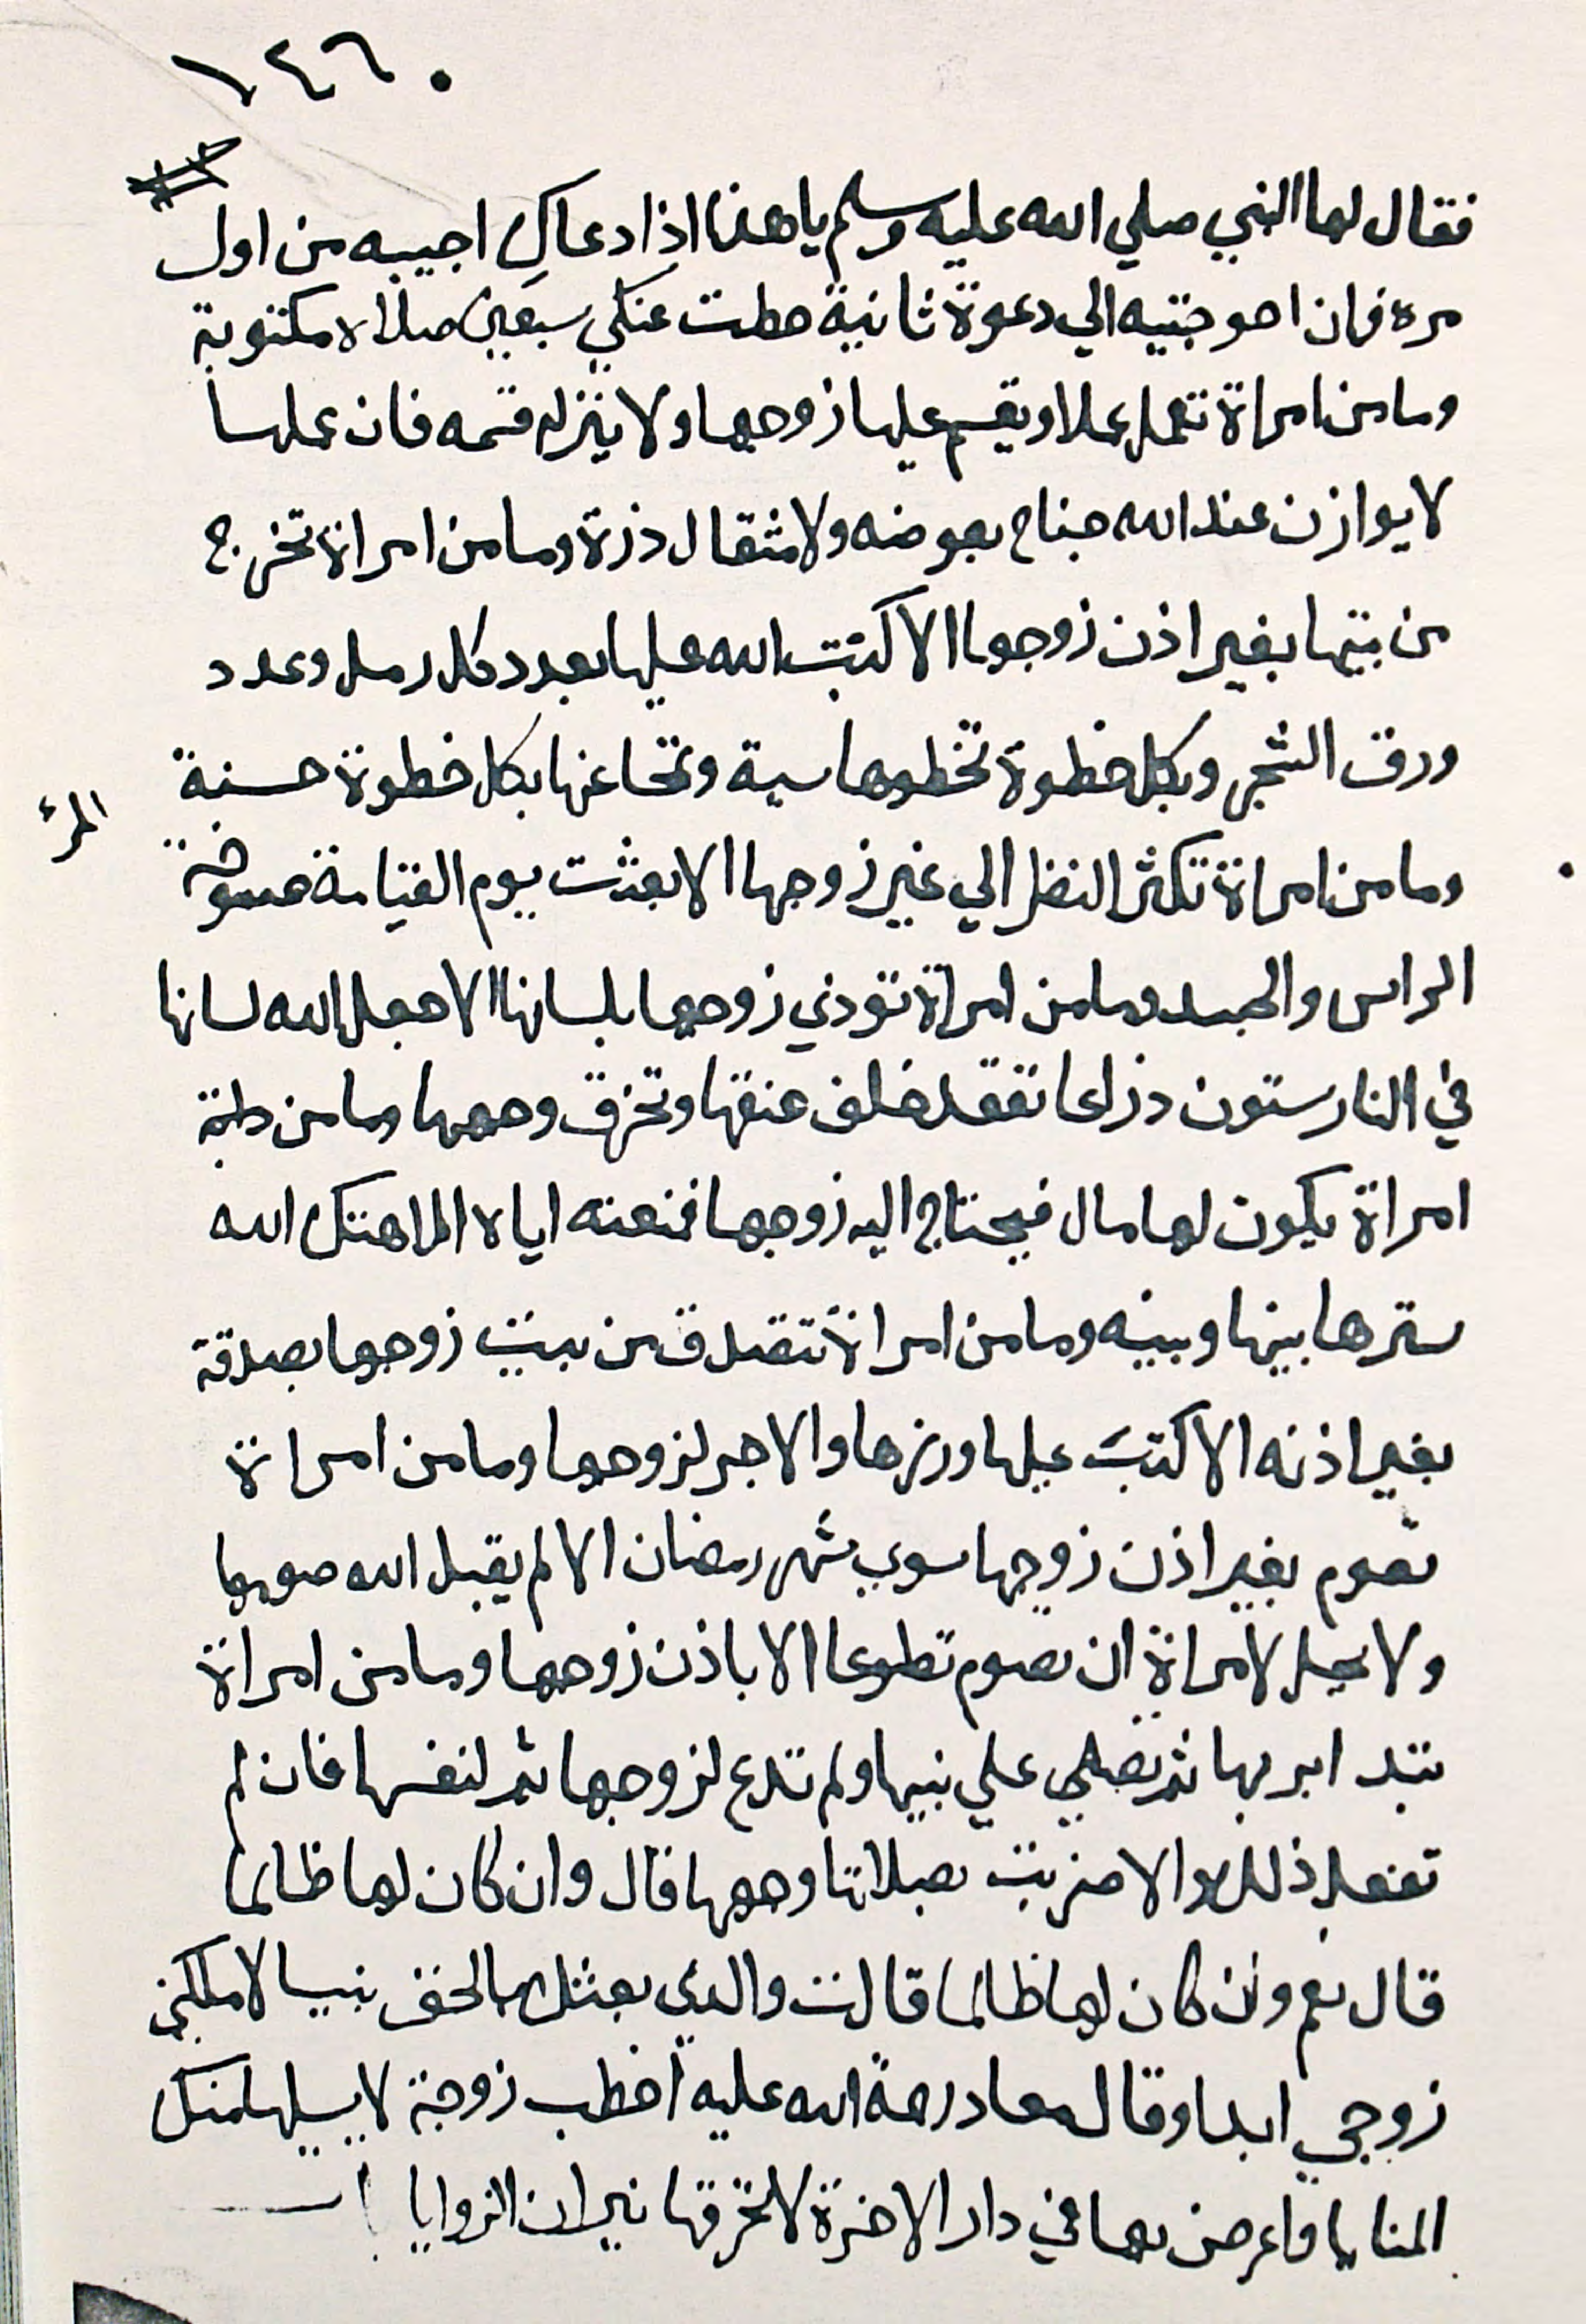 ١٤٦٠
فقال لها النبي صلي الله عليه وسلم يا هذا اذا دعاكِ اجيبه من اول
مره فان احوجتيه الي دعوة ثانية حطت عنكي سبعين صلاه مكتوبة
وما من امراة تعمل عملا ويقسم عليها زوجها ولا يتزله قسمه فان عملها
لا يوازن عند الله جناح بعوضه ولا مثقال ذرة وما من امراة تخرج
من بيتها بغير اذن زوجها الا كتب الله عليها بعدد كل رمل وعدد
ورق الشجر وبكل خطوة تخطوها سية وتمحا عنها بكل خطوة حسنة
المرء
وما من امراة تكثر النظر الي غير زوجها الا بعثت يوم القيامة
الراس والجسد وما من امراة تؤذي زوجها بلسانها الا جعل الله لسانها
في النار ستون ذراعا تعقد خلف عنقها وتحرق وجهها وما من
امراة يكون لها مال فيحتاج اليه زوجها فمنعته اياه الا هتك الله
سترها بينها وبينه وما من امراة تتصدق من بيت زوجها بصدقة
بغير اذنه الا كتب عليها وزرها والاجر لزوجها وما من امراة
تصوم بغير اذن زوجها سوي شهر رمضان الا لم يقبل الله صومها
ولا يحل لامراة ان تصوم تطوعا الا باذن زوجها وما من امراة
تبتدا بربها ثم تصلي علي نبيها ولم تدع لزوجها ثم لنفسها فان لم
تفعل ذلك والا ضربت بصلاتها وجهها قال وان كان لها ظالما
قال نعم وان كان لها ظالما قالت والدي بعثك بالحق نبيا لا ملكني
زوجي ابدا وقال معاد رحمة الله عليه اخطب زوجة لا يسلبها منك
المنايا واعرض بها في دار الاخرة لا تحرقها نيران الزوايا